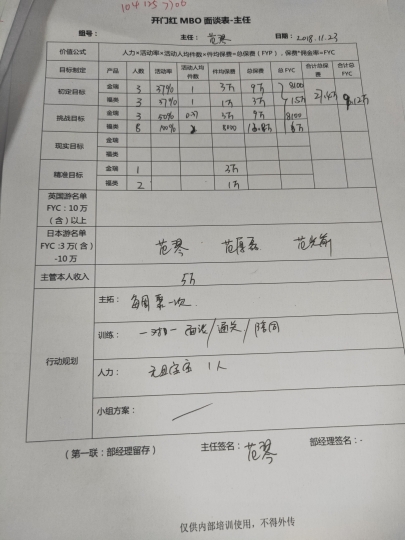 104125700
开门红 MBO 面谈表-主任
组号： 主任：范琴 日期：2018.11.23
价值公式 人力×活动率×活动人均件数×件均保费=总保费（FYP），保费*佣金率=FYC
目标制定 产品 人数 活动率 活动人均件数 件均保费 总保费 总 FYC 合计总保费 合计总FYC
初定目标 金瑞 3 37% 1 3万 9万 8100
福类 3 37% 1 1万 3万 1.5万
挑战目标 金瑞 3 50% 3万 9万 8100
福类 8 100% 8000 6万
现实目标 金瑞
福类
精准目标 金瑞 1 3万
福类 2 1万
英国游名单 FYC：10 万（含）以上
日本游名单 FYC :3 万(含)-10万 范琴
主管本人收入 5万
行动规划
主拓： 每周聚一次
训练： 一对一面谈/通关/陪同
人力： 元旦宝宝 1人
小组方案：
（第一联：部经理留存） 主任签名：范琴 部经理签名：
仅供内部培训使用，不得外传